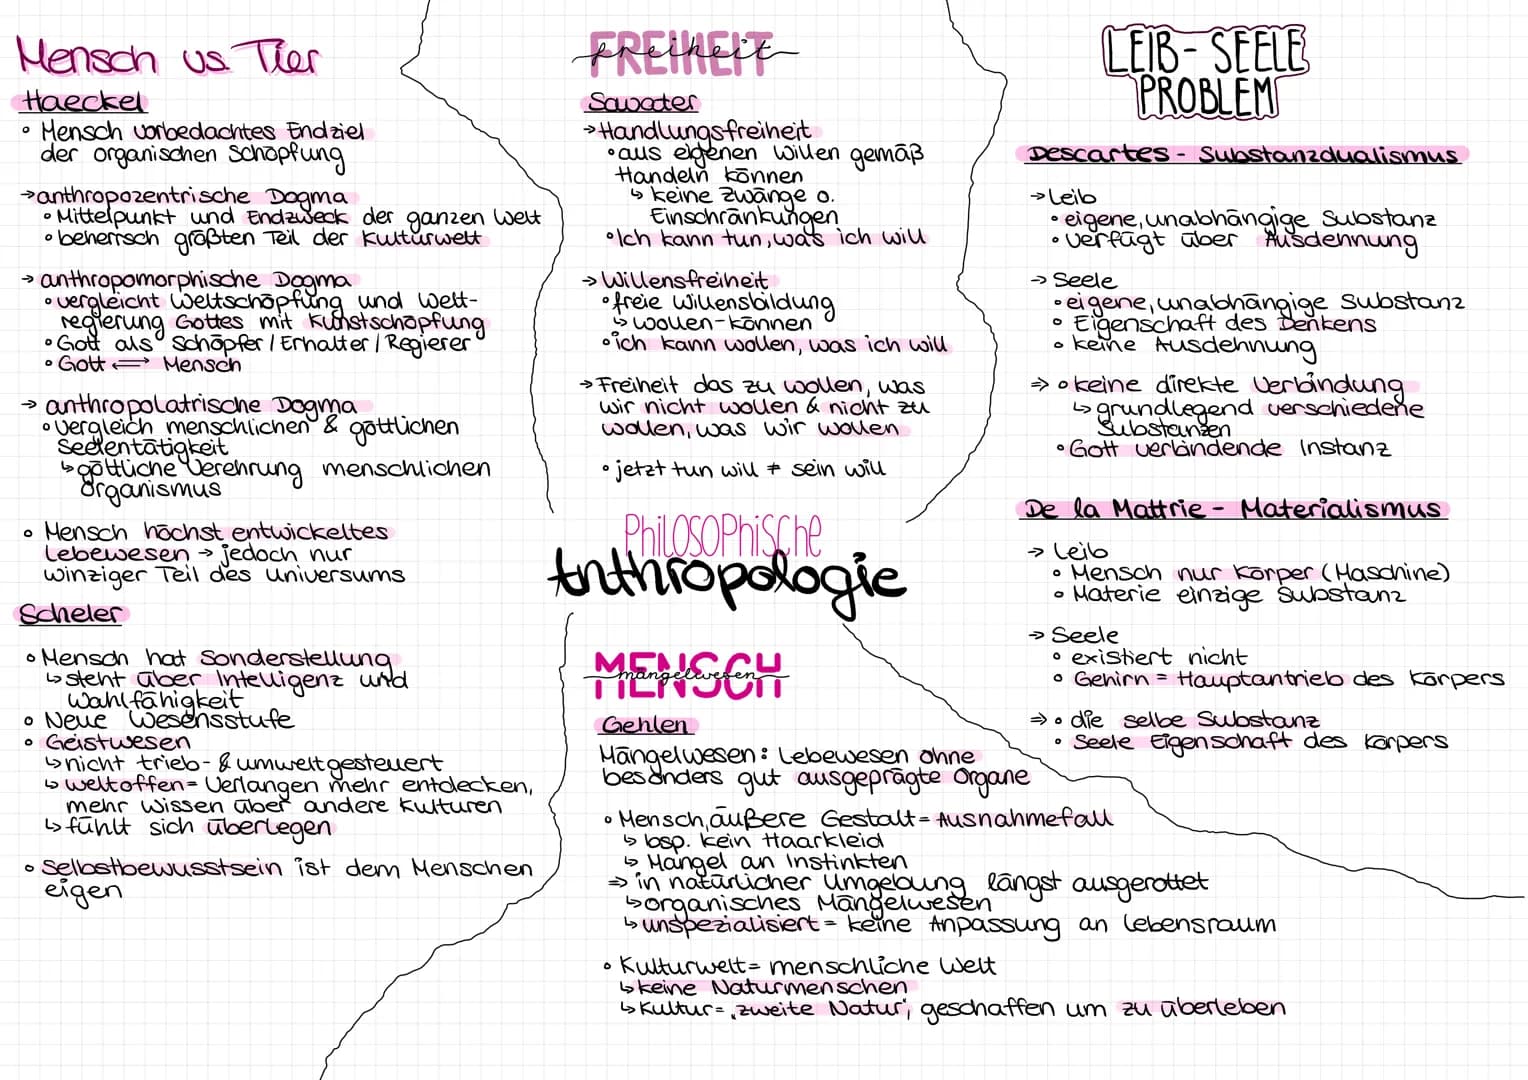 Mensch vs. Tier
Haeckel
• Mensch vorbedachtes Endziel
der organischen Schöpfung
→ anthropozentrische Dogma
• Mittelpunkt und Endzweck der ganzen Welt
• beherrsch größten Teil der Kulturwelt
→ anthropomorphische Dogma
• vergleicht Weltschöpfung und Welt-
regierung Gottes mit Kunstschöpfung
• Gott als Schöpfer / Erhalter / Regierer
• Gott ⇌ Mensch
→ anthropolatrische Dogma
• Vergleich menschlichen & göttlichen
Seelentätigkeit
↳ göttliche Verehrung menschlichen
Organismus
• Mensch höchst entwickeltes
Lebewesen → jedoch nur
winziger Teil des Universums
Scheler
• Mensch hat Sonderstellung
↳ steht über Intelligenz und
Wahlfähigkeit
• Neue Wesensstufe
• Geistwesen
↳ nicht trieb- & umweltgesteuert
↳ weltoffen = Verlangen mehr entdecken,
mehr wissen über andere Kulturen
↳ fühlt sich überlegen
• Selbstbewusstsein ist dem Menschen
eigen
FREIHEIT
freiheit
Savater
→ Handlungsfreiheit
• aus eigenen Willen gemäß
Handeln können
↳ keine Zwänge o.
Einschränkungen
• Ich kann tun, was ich will
→ Willensfreiheit
• freie Willensbildung
↳ wollen-können
• ich kann wollen, was ich will
→ Freiheit das zu wollen, was
wir nicht wollen & nicht zu
wollen, was wir wollen
• jetzt tun will ≠ sein will
PHILOSOPHISCHE
Anthropologie
MENSCH
mängelwesen
Gehlen
Mängelwesen: Lebewesen ohne
besonders gut ausgeprägte Organe
• Mensch, äußere Gestalt = Ausnahmefall
↳ bsp. kein Haarkleid
↳ Mangel an Instinkten
⇒ in natürlicher Umgebung längst ausgerottet
↳ organisches Mängelwesen
↳ unspezialisiert = keine Anpassung an Lebensraum
• Kulturwelt = menschliche Welt
↳ keine Naturmenschen
↳ Kultur = ‚zweite Natur', geschaffen um zu überleben
LEIB-SEELE
PROBLEM
Descartes - Substanzdualismus
→ Leib
• eigene, unabhängige Substanz
• Verfügt über Ausdehnung
→ Seele
• eigene, unabhängige Substanz
• Eigenschaft des Denkens
• keine Ausdehnung
⇒ • keine direkte Verbindung
↳ grundlegend verschiedene
Substanzen
• Gott verbindende Instanz
De la Mattrie - Materialismus
→ Leib
• Mensch nur Körper (Maschine)
• Materie einzige Substanz
→ Seele
• existiert nicht
• Gehirn = Hauptantrieb des Körpers
⇒ • die selbe Substanz
• Seele Eigenschaft des Körpers